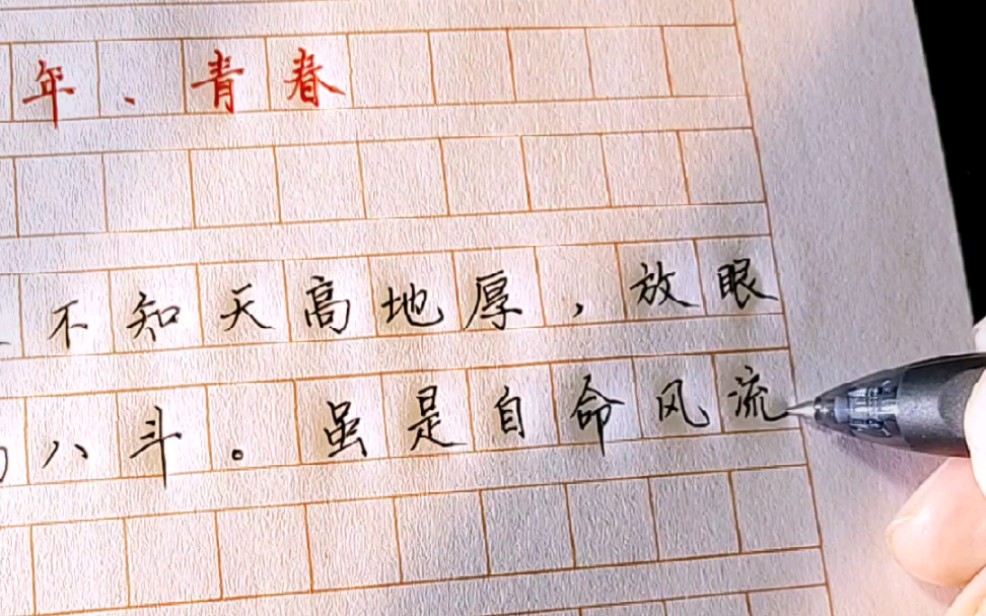 年、青春
不知天高地厚，放眼
八斗。虽是自命风流